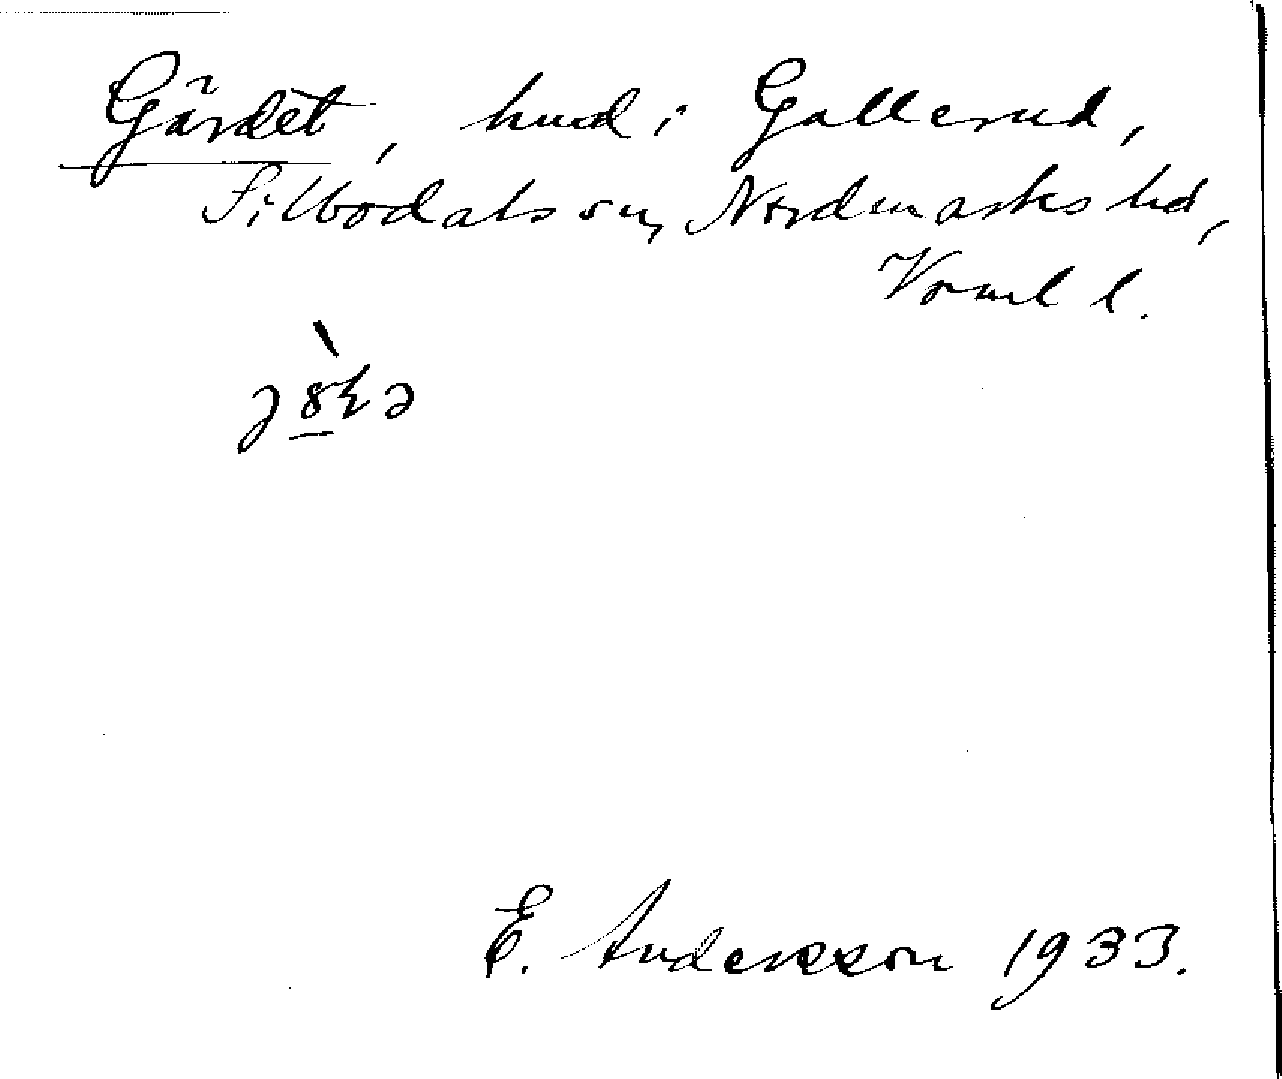 Gärdet, hmd i Gallerud,
Silbodals sn, Nordmarks hd,
Vrml l.
E. Andersson 1933.